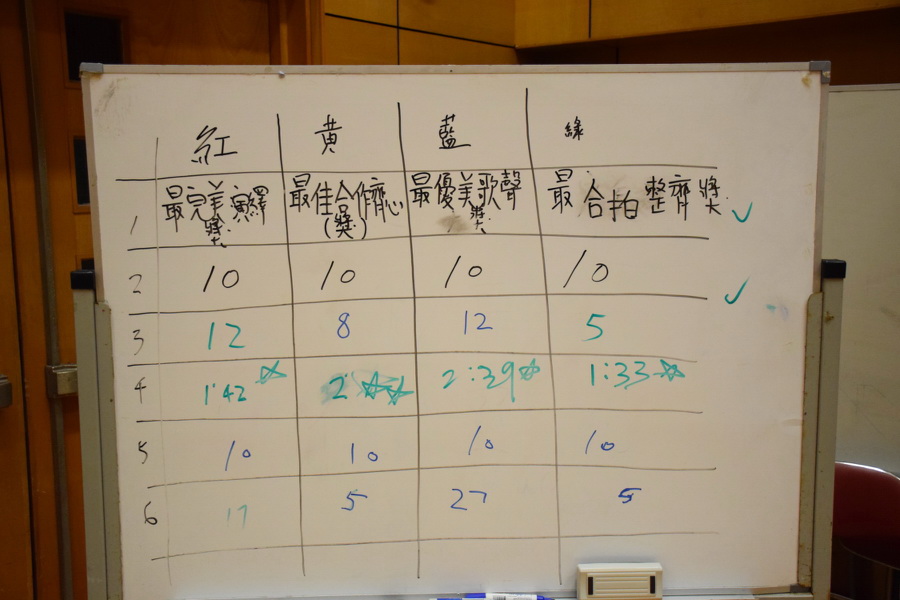 紅 黄 藍 綠
1 最完美演繹獎 最佳合作齊心(獎) 最優美歌聲獎 最合拍整齊獎 ✓
2 10 10 10 10 ✓
3 12 8 12 5
4 1:42☆ 2:☆☆ 2:39☆ 1:33☆
5 10 10 10 10
6 17 5 27 5